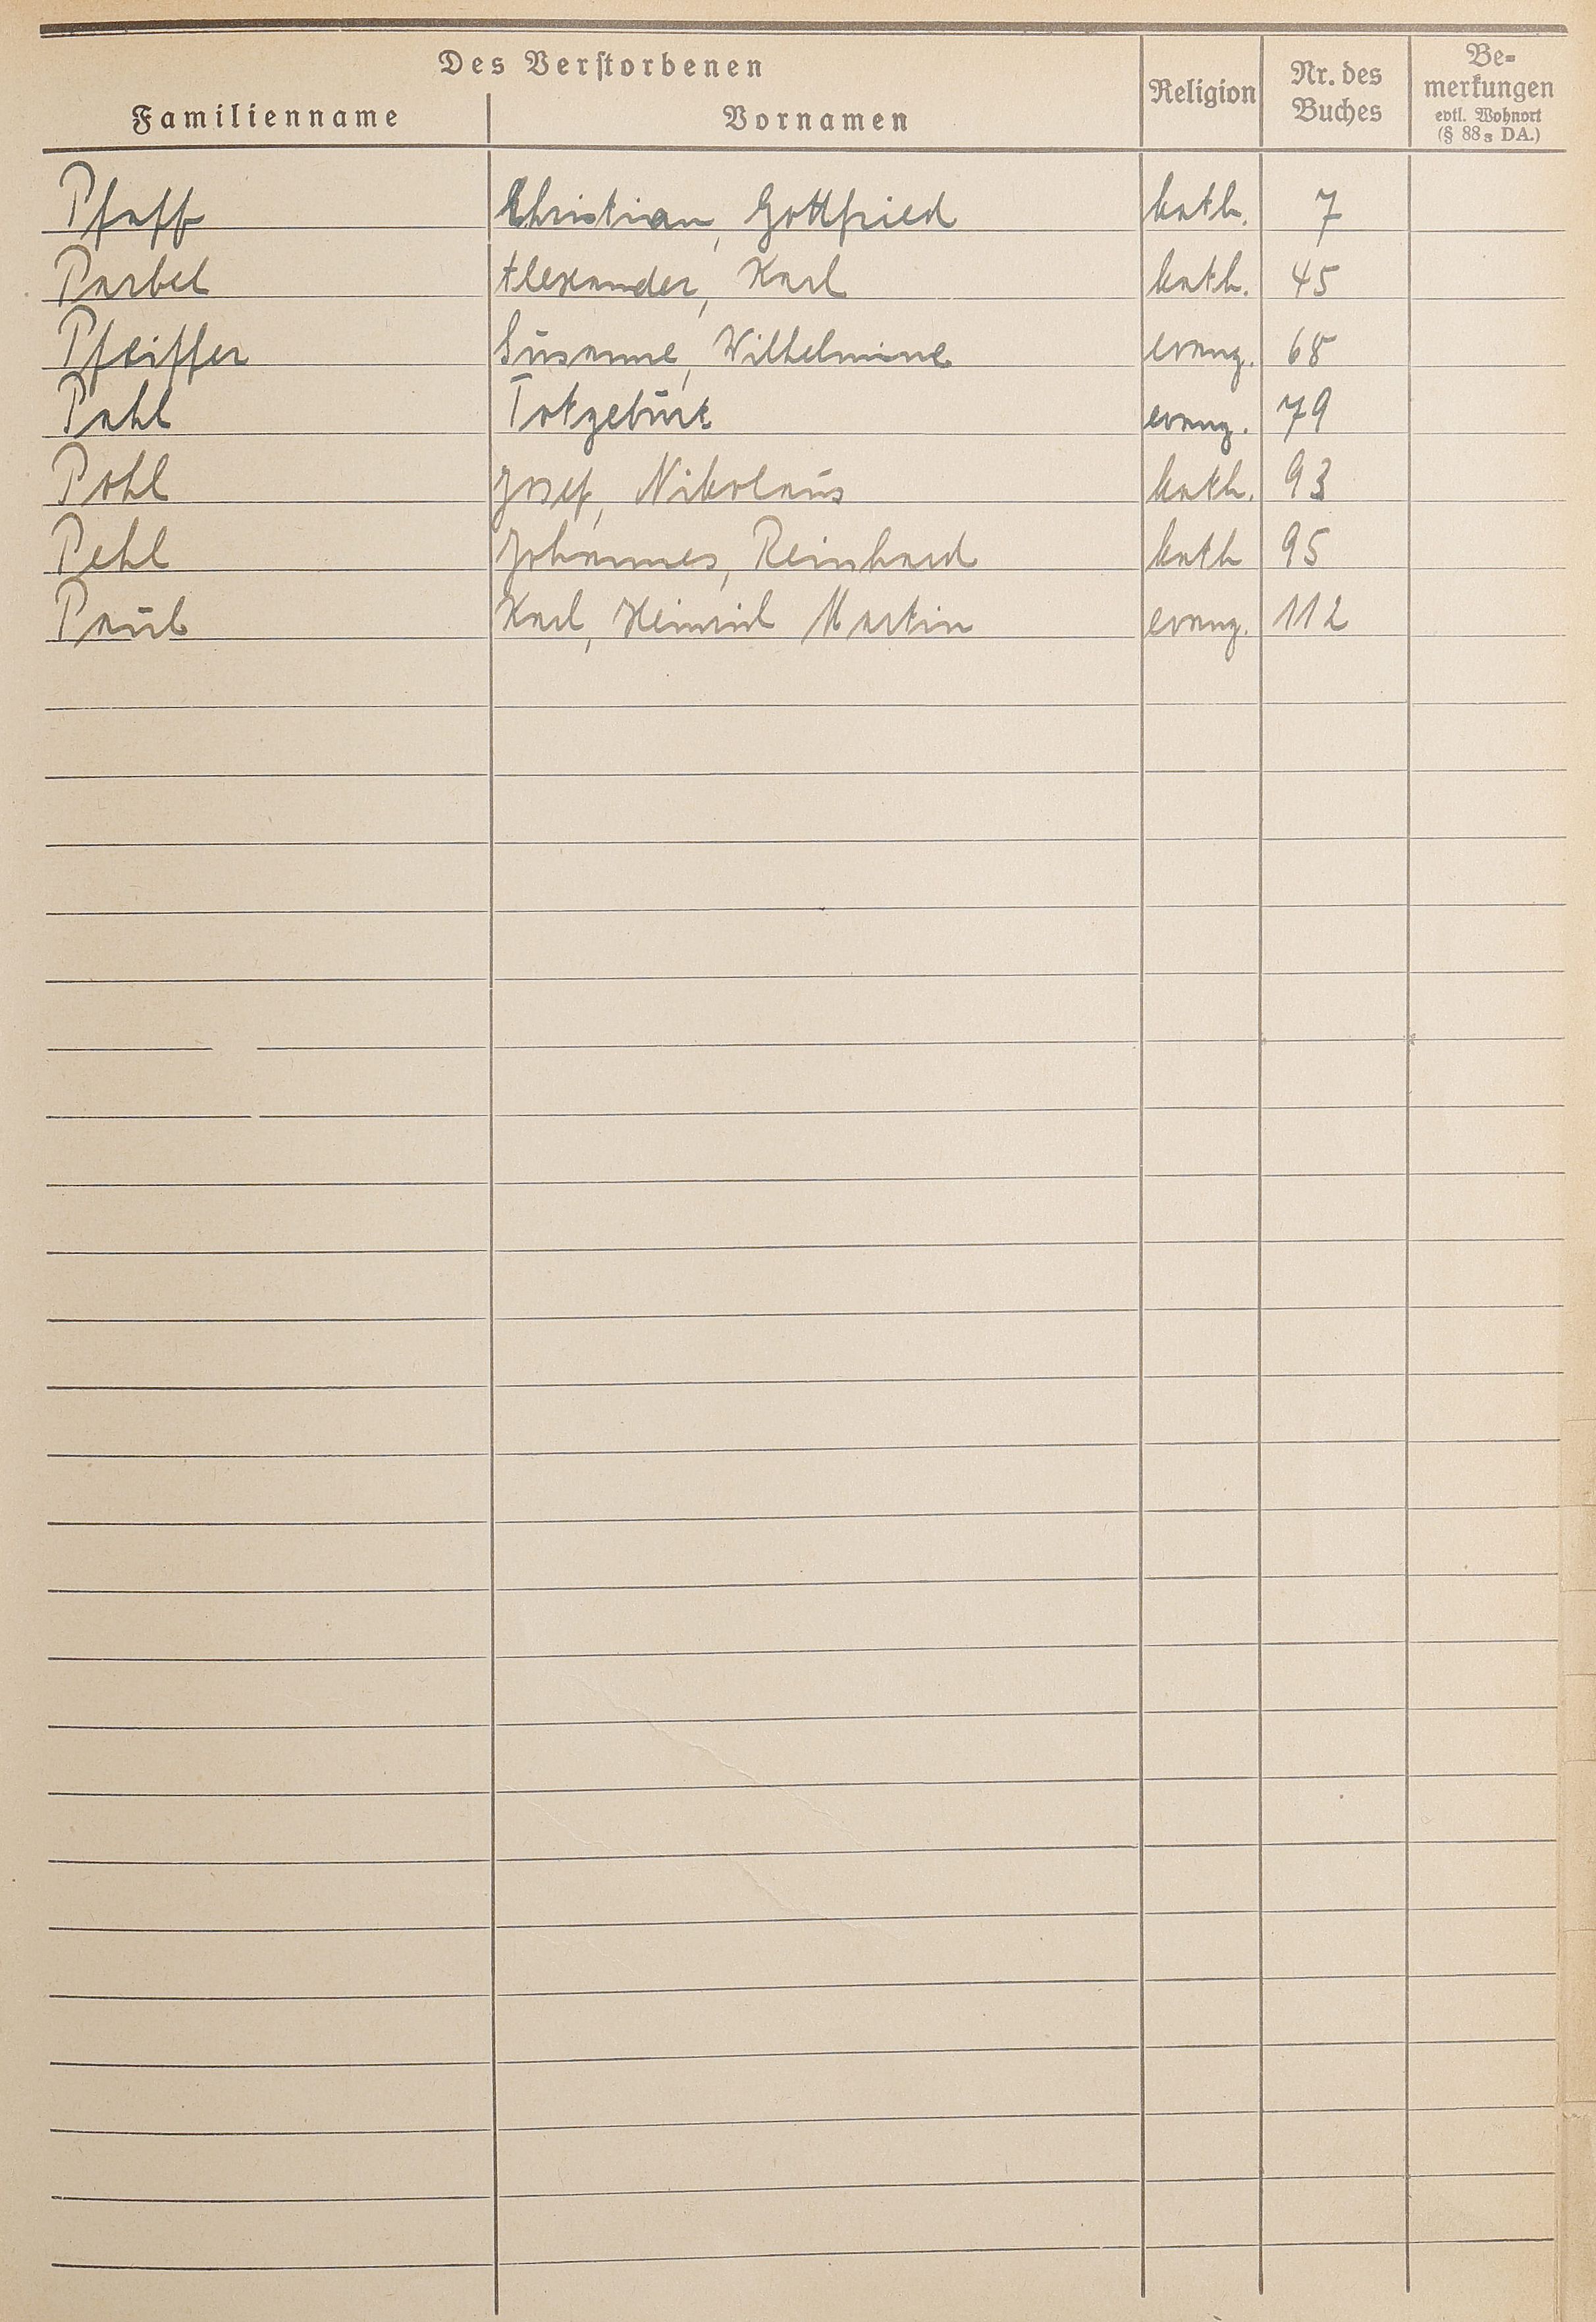 Des Verstorbenen
Familienname Vornamen Religion Nr. des Buches Be-
merkungen
evtl. Wohnort
(§ 88 3 DA.)
Pfaff Christian, Gottfried kath. 7
Parbel Alexander, Karl kath. 45
Pfeiffer Susanne, Wilhelmine evang. 68
Pahl Totgeburt evang. 79
Pohl Josef, Nikolaus kath. 93
Pehl Johannes, Reinhard kath 95
Paul Karl, Heinrich Martin evang. 112